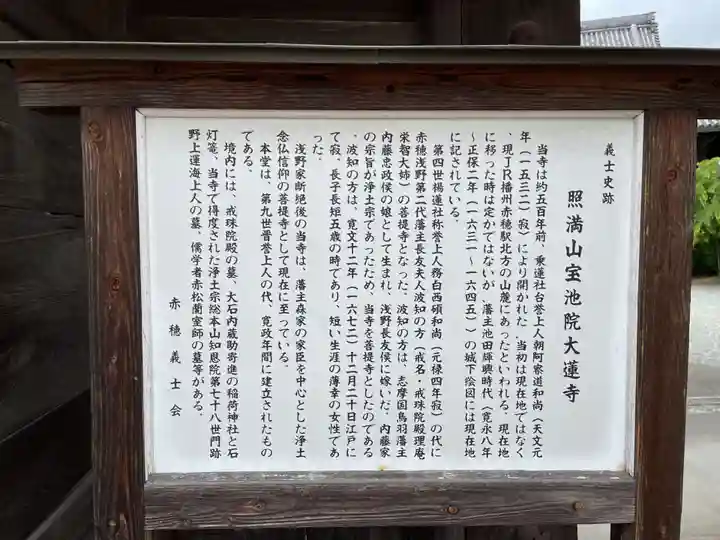 義士史跡
照満山宝池院大蓮寺
当寺は約五百年前、乗蓮社台誉上人朝阿察道和尚(天文元
年(一五三二)寂)により開かれた。当初は現在地ではなく
、現JR播州赤穂駅北方の山麓にあったといわれる。現在地
に移った時は定かではないが、藩主池田輝興時代(寛永八年
〜正保二年(一六三一〜一六四五))の城下絵図には現在地
に記されている。
第四世揚蓮社称誉上人務白西碩和尚(元禄四年寂)の代に
赤穂浅野第二代藩主長友夫人波知の方(戒名・戒珠院殿理庵
栄智大姉)の菩提寺となった。波知の方は、志摩国鳥羽藩主
内藤忠政侯の娘として生まれ、浅野長友侯に嫁いだ。内藤家
の宗旨が浄土宗であったため、当寺を菩提寺としたのである
。波知の方は、寛文十二年(一六七二)十二月二十日江戸に
て寂、長子長短五歳の時であり、短い生涯の薄幸の女性であ
った。
浅野家断絶後の当寺は、藩主森家の家臣を中心とした浄土
念仏信仰の菩提寺として現在に至っている。
本堂は、第九世晋誉上人の代、寛政年間に建立されたもの
である。
境内には、戒珠院殿の墓、大石内蔵助寄進の稲荷神社と石
灯篭、当寺で得度された浄土宗総本山知恩院第七十八世門跡
野上運海上人の墓、儒学者赤松蘭室師の墓等がある。
赤穂義士会